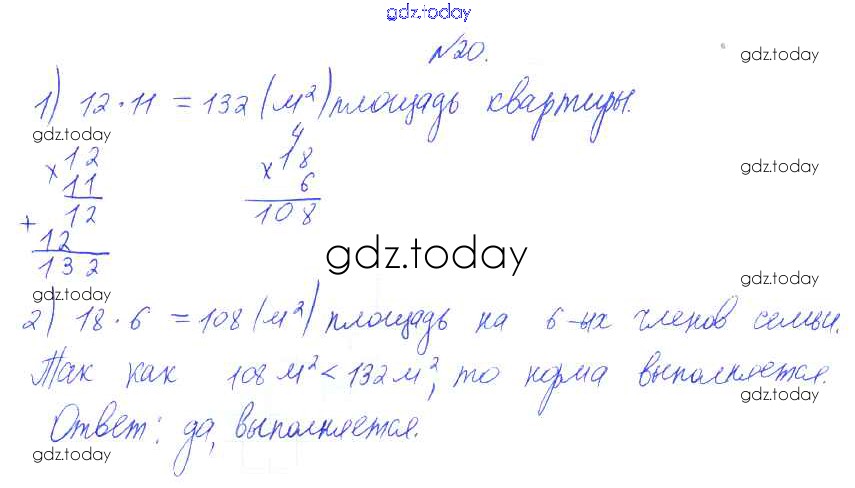 gdz.today
№20.
gdz.today
1) 12 · 11 = 132 (м²) площадь квартиры.
gdz.today
4
× 12 × 18
11 6
gdz.today
+ 12 108
12
132
gdz.today
gdz.today
gdz.today
2) 18 · 6 = 108 (м²) площадь на 6-ых членов семьи.
Так как 108 м² < 132 м², то норма выполняется.
gdz.today
Ответ: да, выполняется.
gdz.today